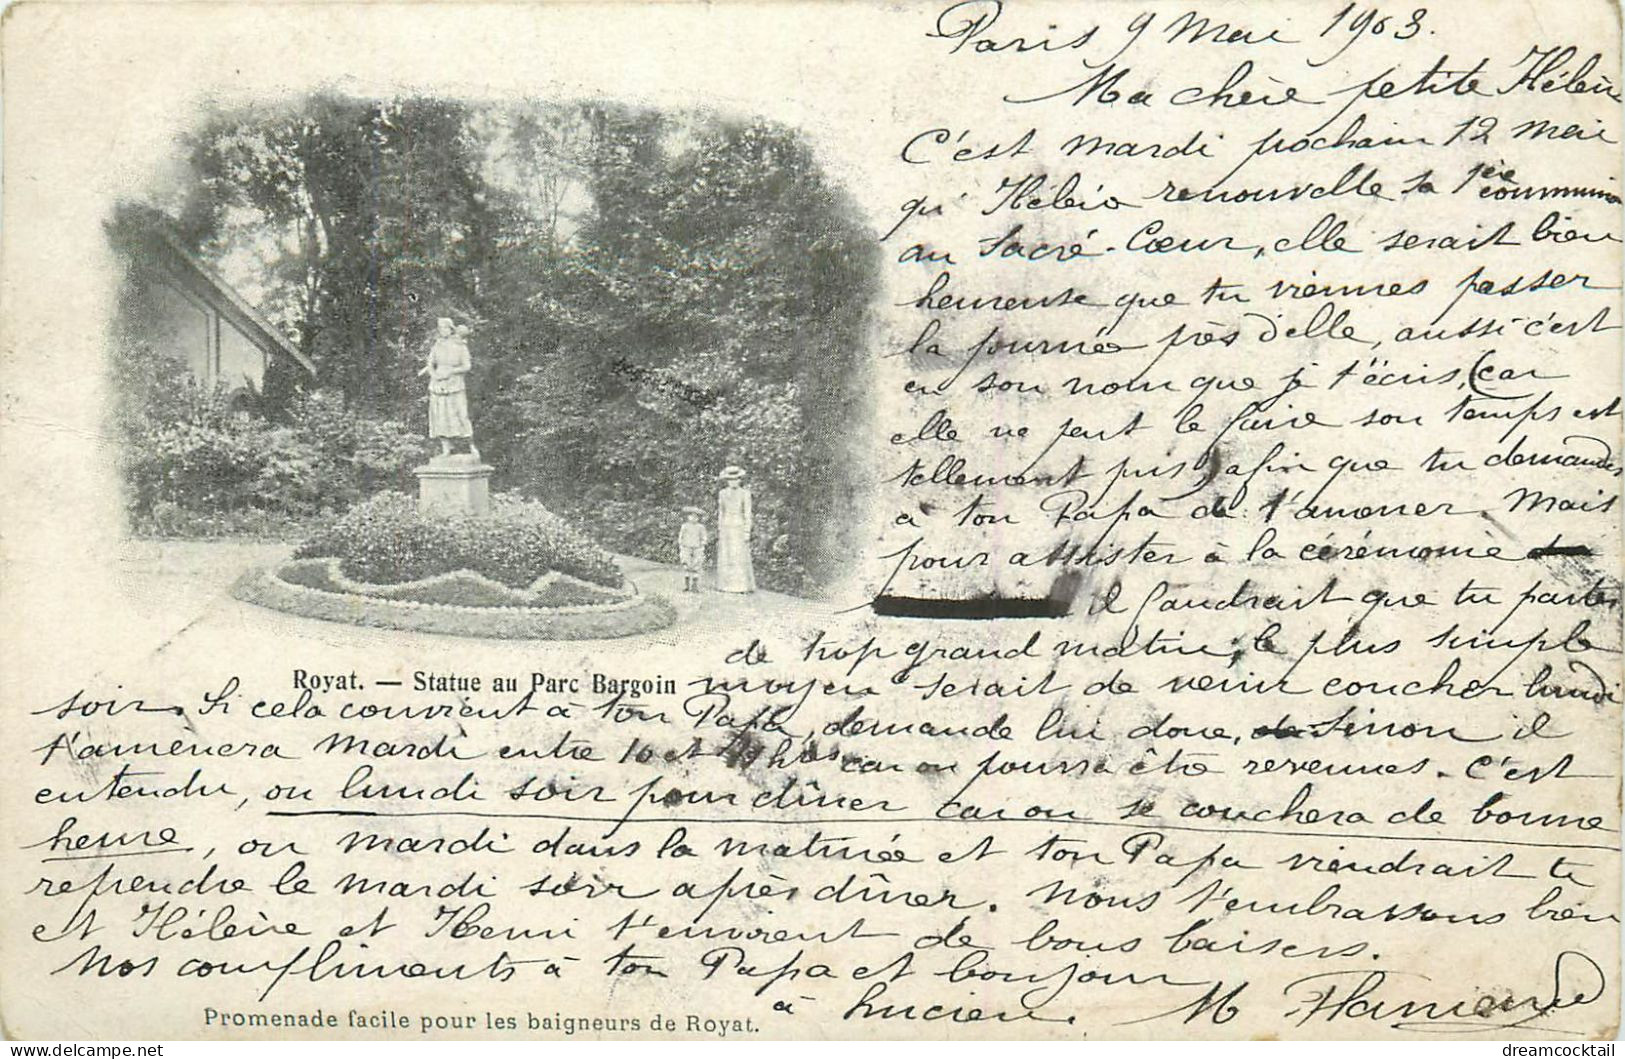 Paris 9 Mai 1903.
Ma chère petite Hélène
C'est mardi prochain 12 Mai
qu'Hélène renouvelle sa 1ère communion
au Sacré-Cœur, elle serait bien
heureuse que tu viennes passer
la journée près d'elle, aussi c'est
en son nom que je t'écris, (car
elle ne peut le faire son temps est
tellement pris,) afin que tu demandes
à ton Papa de t'amener. Mais
pour assister à la cérémonie
il faudrait que tu partes
de trop grand matin, le plus simple
moyen serait de venir coucher lundi
soir. Si cela convient à ton Papa, demande lui donc, Sinon il
t'amènera Mardi entre 10 et 11 hres car on pourra être revenues. C'est
entendu, ou lundi soir pour dîner car on se couchera de bonne
heure, ou mardi dans la matinée et ton Papa viendrait te
reprendre le mardi soir après dîner. Nous t'embrassons bien
et Hélène et Henri t'envoient de bons baisers.
Nos compliments à ton Papa et bonjour
à Lucien. M
Royat. — Statue au Parc Bargoin
Promenade facile pour les baigneurs de Royat.
dreamcocktail